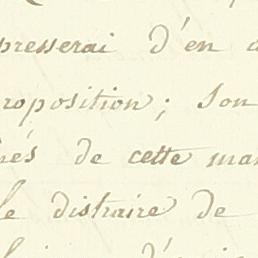 presserai d'en
roposition; Son
de cette
le distraire de